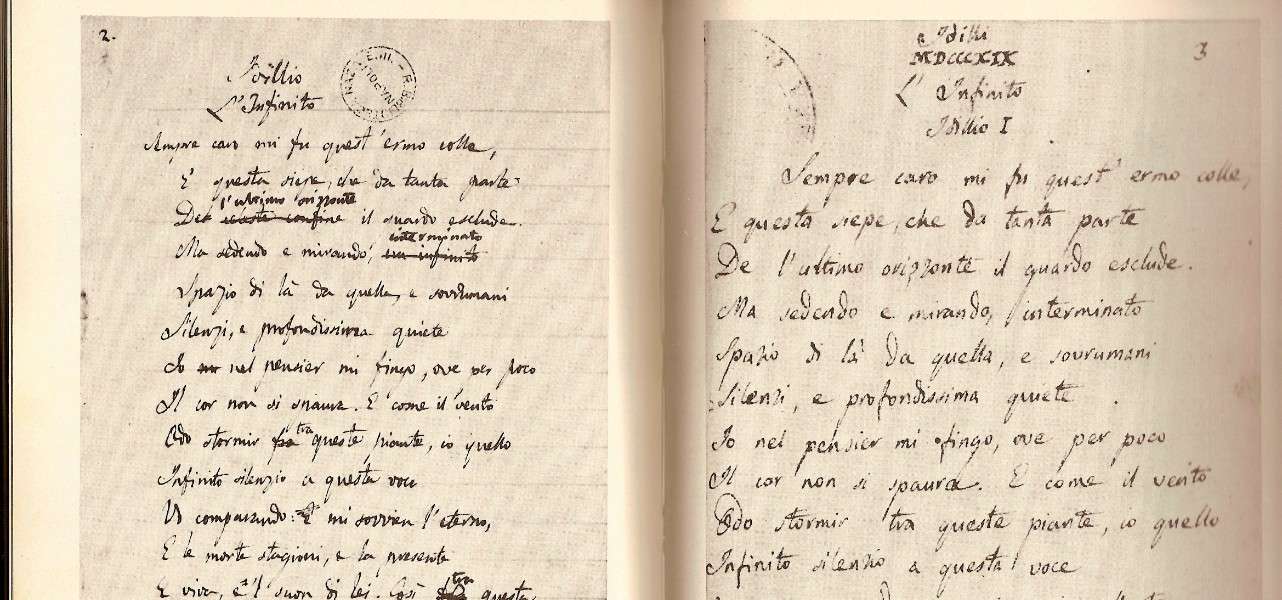 2.
Idillio
L'Infinito
Sempre caro mi fu quest'ermo colle,
E questa siepe, che da tanta parte
l'ultimo orizzonte
De il guardo esclude.
interminato
Ma sedendo e mirando, un infinito
Spazio di là da quella, e sovrumani
Silenzi, e profondissima quiete
Io nel pensier mi fingo, ove per poco
Il cor non si spaura. E come il vento
tra
Odo stormir fra queste piante, io quello
Infinito silenzio a questa voce
Vo comparando: E mi sovvien l'eterno,
E le morte stagioni, e la presente
tra
E viva, e 'l suon di lei. Così questa
3
Idilli
MDCCCXIX
L'Infinito
Idillio I
Sempre caro mi fu quest'ermo colle,
E questa siepe, che da tanta parte
De l'ultimo orizzonte il guardo esclude.
Ma sedendo e mirando, interminato
Spazio di là da quella, e sovrumani
Silenzi, e profondissima quiete
Io nel pensier mi fingo, ove per poco
Il cor non si spaura. E come il vento
Odo stormir tra queste piante, io quello
Infinito silenzio a questa voce